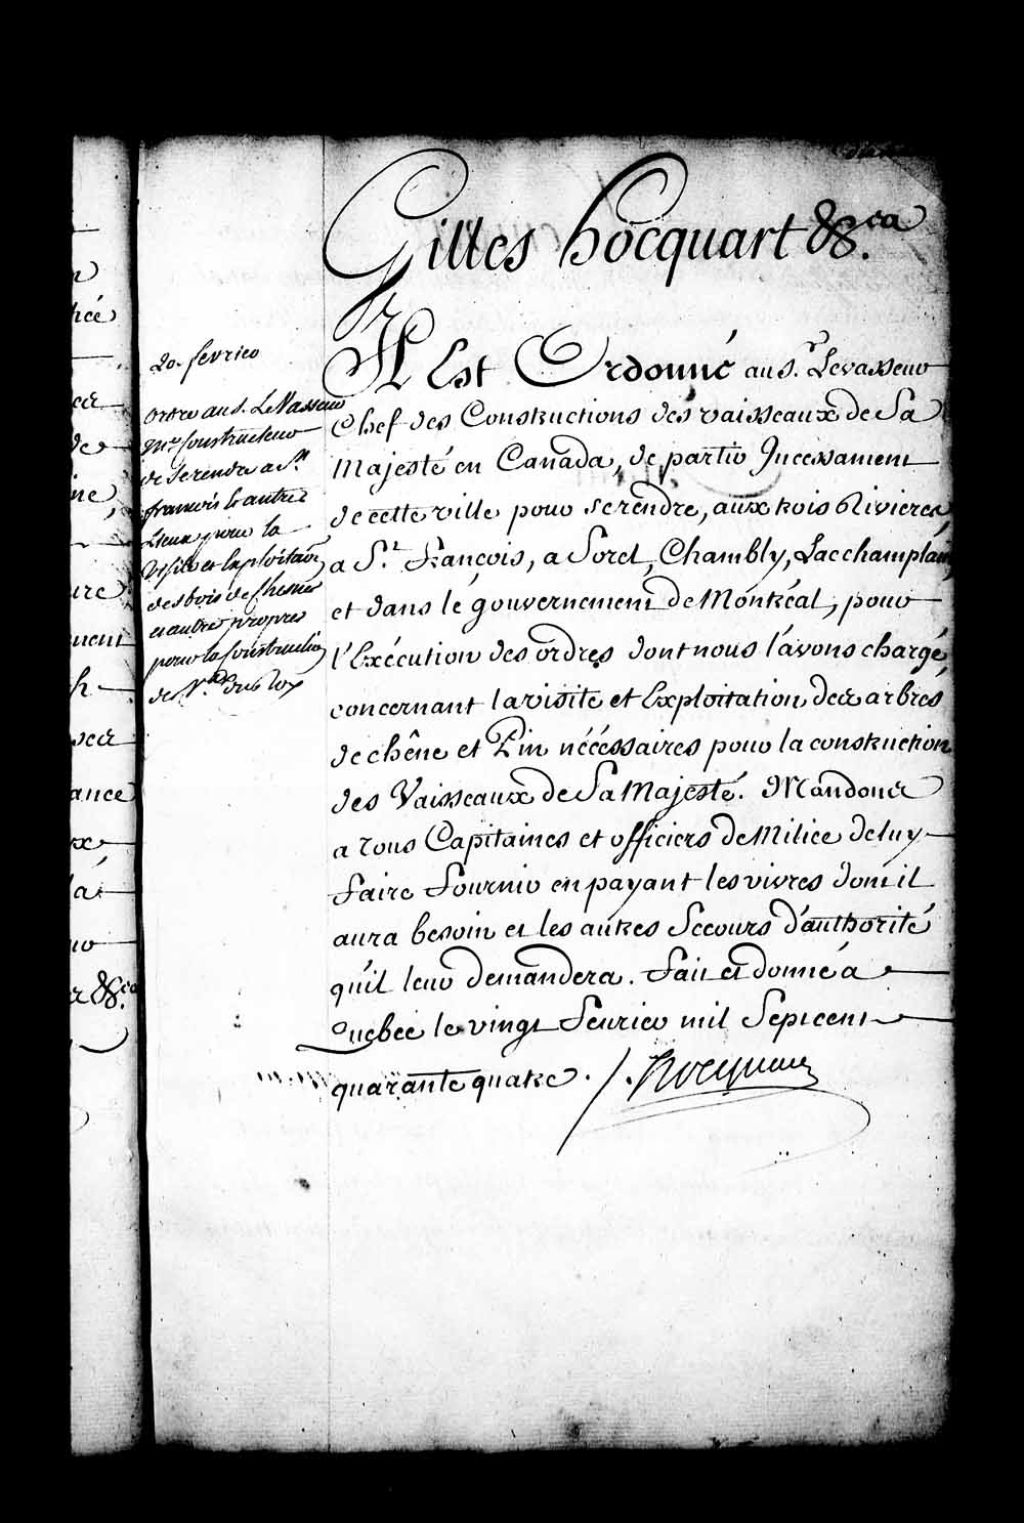 Gilles hocquart &c.ca
Il Est Ordonné au S.r Levasseur
Chef des Constructions des vaisseaux de Sa
Majesté en Canada, de partir Incessament
de cette ville pour se rendre, aux trois Rivieres,
a S.t François, a Sorel, Chambly, Lac champlain,
et dans le gouvernement de Montréal, pour
l'Exécution des ordres dont nous l'avons chargé,
concernant la visite et Exploitation des arbres
de chêne et Pin nécéssaires pour la construction
des Vaisseaux de Sa Majesté. Mandons
a tous Capitaines et officiers de Milice de luy
faire fournir en payant les vivres dont il
aura besoin et les autres Secours d'authorité
qu'il leur demandera. Fait et donné a
Quebec le vingt feurier mil Sept cent
quarante quatre. /. Hocquart
20. feurier
ordre au S. Le Vasseur
M.e Constructeur
de se rendre a S.t
francois & autres
Lieux pour la
Visite et Exploitaon
des bois de Chesnes
et autres propres
pour la Construction
de V.aux du Roy